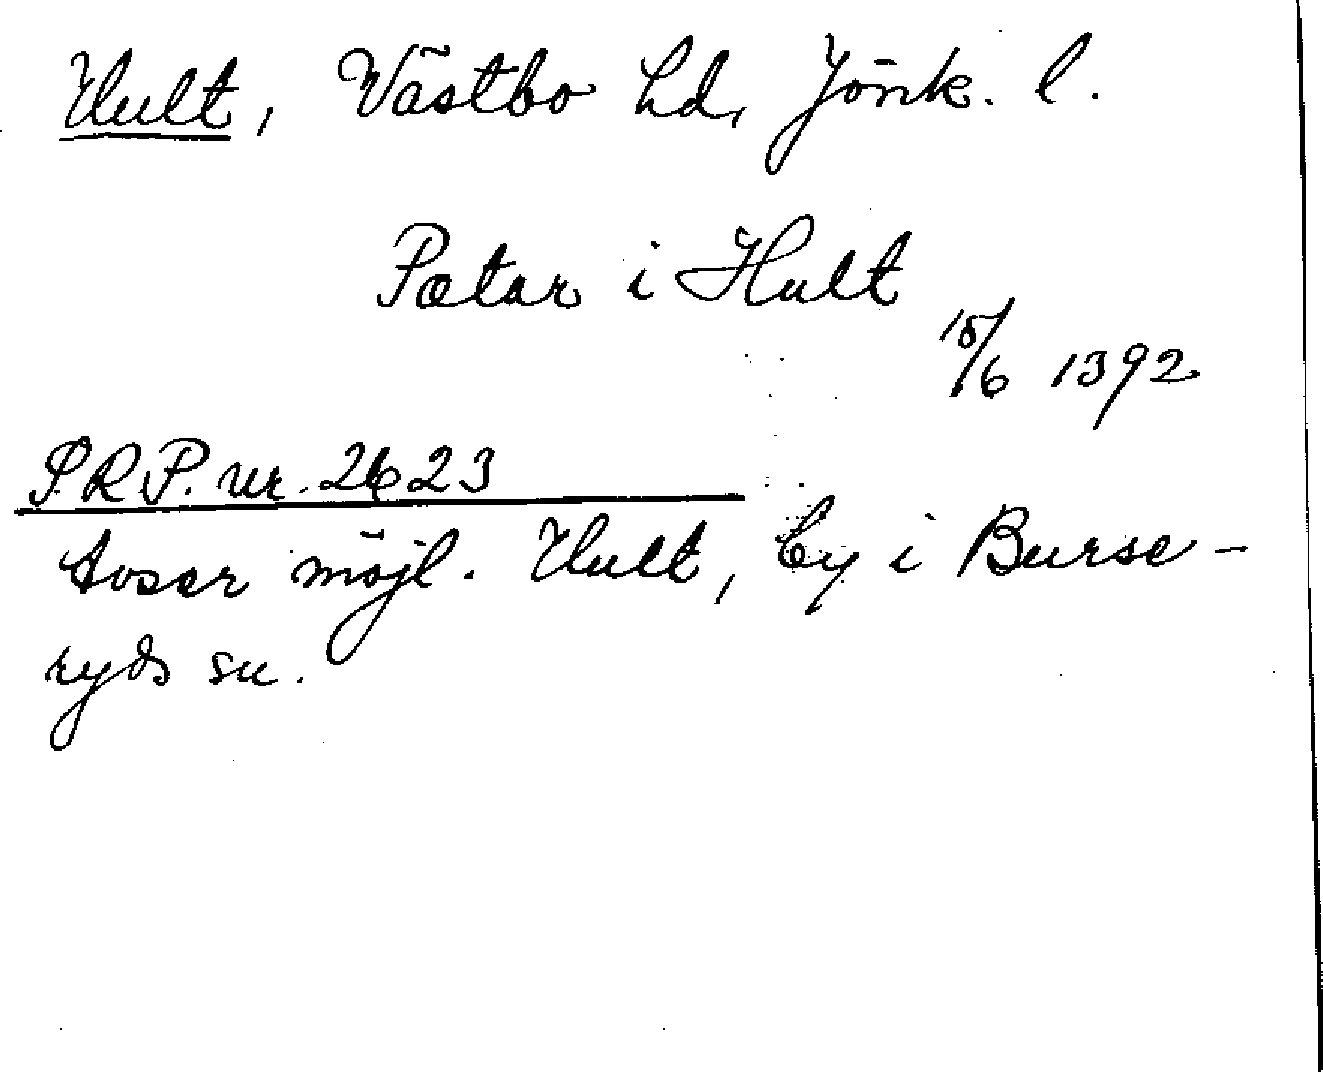 Hult, Västbo hd, Jönk. l.
Pætar i Hult
15/6 1392
S.R.P. nr. 2623
Avser möjl. Hult, by i Burse-
ryds sn.